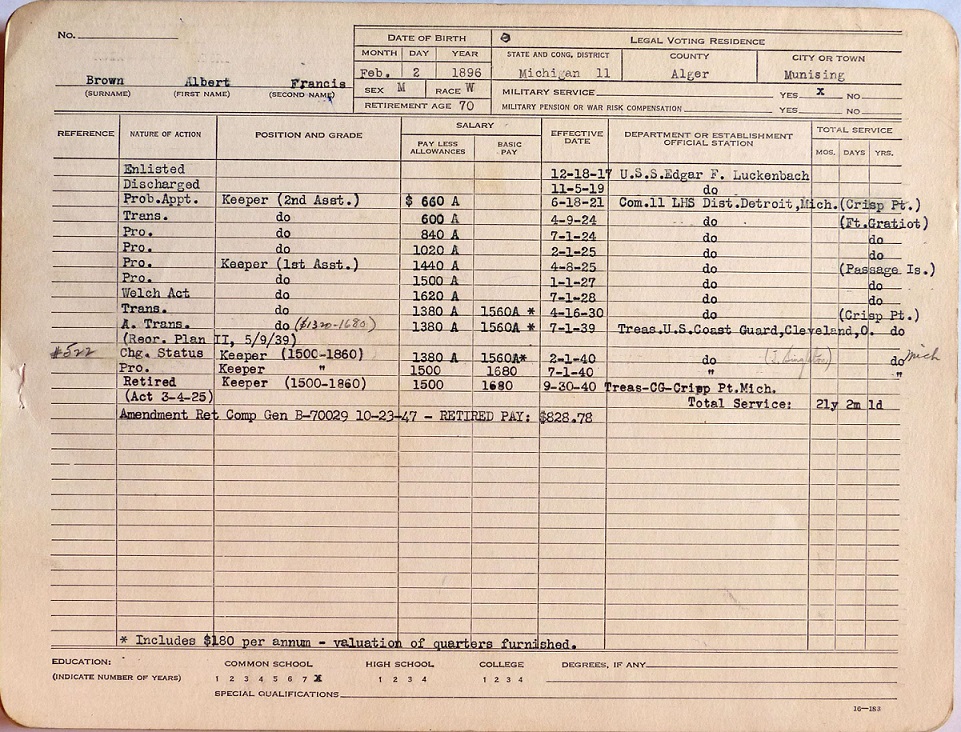 No.
DATE OF BIRTH LEGAL VOTING RESIDENCE
MONTH DAY YEAR STATE AND CONG. DISTRICT COUNTY CITY OR TOWN
Feb. 2 1896 Michigan 11 Alger Munising
Brown Albert Francis
(SURNAME) (FIRST NAME) (SECOND NAME)
SEX M RACE W MILITARY SERVICE YES X NO
RETIREMENT AGE 70 MILITARY PENSION OR WAR RISK COMPENSATION YES NO
REFERENCE NATURE OF ACTION POSITION AND GRADE SALARY EFFECTIVE DATE DEPARTMENT OR ESTABLISHMENT OFFICIAL STATION TOTAL SERVICE
PAY LESS ALLOWANCES BASIC PAY MOS. DAYS YRS.
Enlisted 12-18-17 U.S.S.Edgar F. Luckenbach
Discharged 11-5-19 do
Prob.Appt. Keeper (2nd Asst.) $ 660 A 6-18-21 Com.11 LHS Dist.Detroit,Mich.(Crisp Pt.)
Trans. do 600 A 4-9-24 do (Ft.Gratiot)
Pro. do 840 A 7-1-24 do do
Pro. do 1020 A 2-1-25 do do
Pro. Keeper (1st Asst.) 1440 A 4-8-25 do (Passage Is.)
Pro. do 1500 A 1-1-27 do do
Welch Act do 1620 A 7-1-28 do do
Trans. do 1380 A 1560A * 4-16-30 do (Crisp Pt.)
A. Trans. do ($1320-1680) 1380 A 1560A * 7-1-39 Treas.U.S.Coast Guard,Cleveland,O. do
(Reor. Plan II, 5/9/39)
#522 Chg. Status Keeper (1500-1860) 1380 A 1560A* 2-1-40 do do Mich
Pro. Keeper " 1500 1680 7-1-40 " "
Retired Keeper (1500-1860) 1500 1680 9-30-40 Treas-CG-Crisp Pt.Mich.
(Act 3-4-25) Total Service: 21y 2m 1d
Amendment Ret Comp Gen B-70029 10-23-47 - RETIRED PAY: $828.78
* Includes $180 per annum - valuation of quarters furnished.
EDUCATION: COMMON SCHOOL HIGH SCHOOL COLLEGE DEGREES, IF ANY
(INDICATE NUMBER OF YEARS) 1 2 3 4 5 6 7 X 1 2 3 4 1 2 3 4
SPECIAL QUALIFICATIONS
16—183